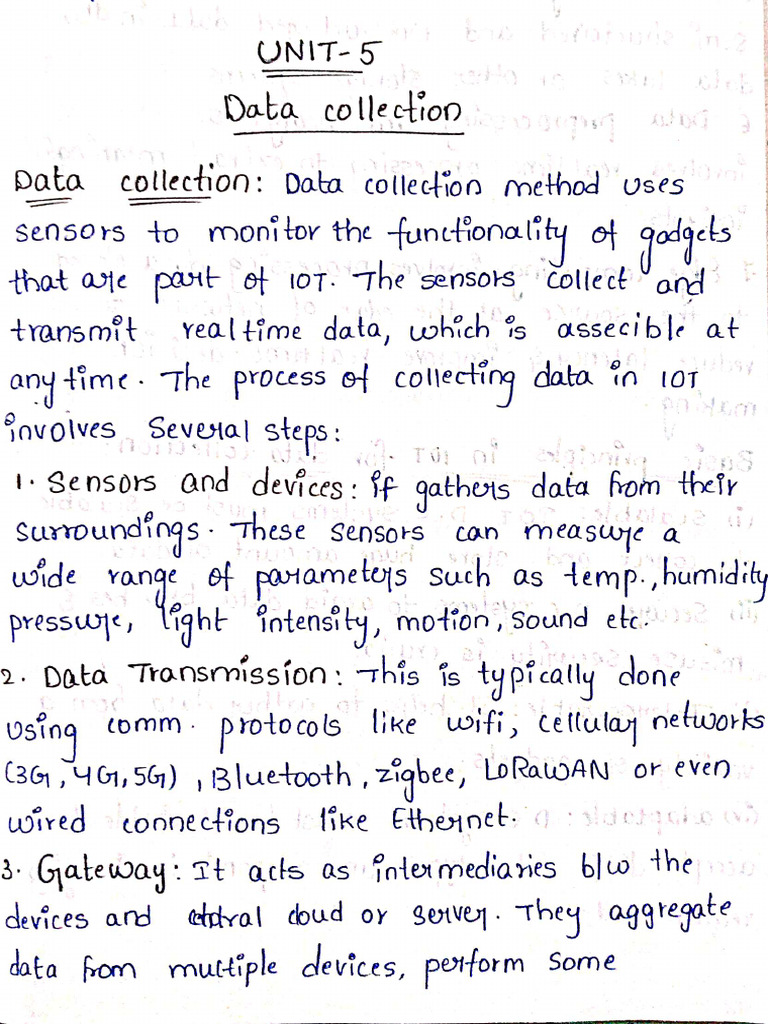 UNIT-5
Data collection
Data collection: Data collection method uses
sensors to monitor the functionality of gadgets
that are part of IOT. The sensors collect and
transmit realtime data, which is assecible at
any time. The process of collecting data in IOT
involves several steps:
1. Sensors and devices: if gathers data from their
surroundings. These sensors can measure a
wide range of parameters such as temp., humidity
pressure, light intensity, motion, sound etc.
2. Data Transmission: This is typically done
using comm. protocols like wifi, cellular networks
(3G, 4G, 5G), Bluetooth, zigbee, LoRaWAN or even
wired connections like Ethernet.
3. Gateway: It acts as intermediaries b/w the
devices and cloud or server. They aggregate
data from multiple devices, perform some